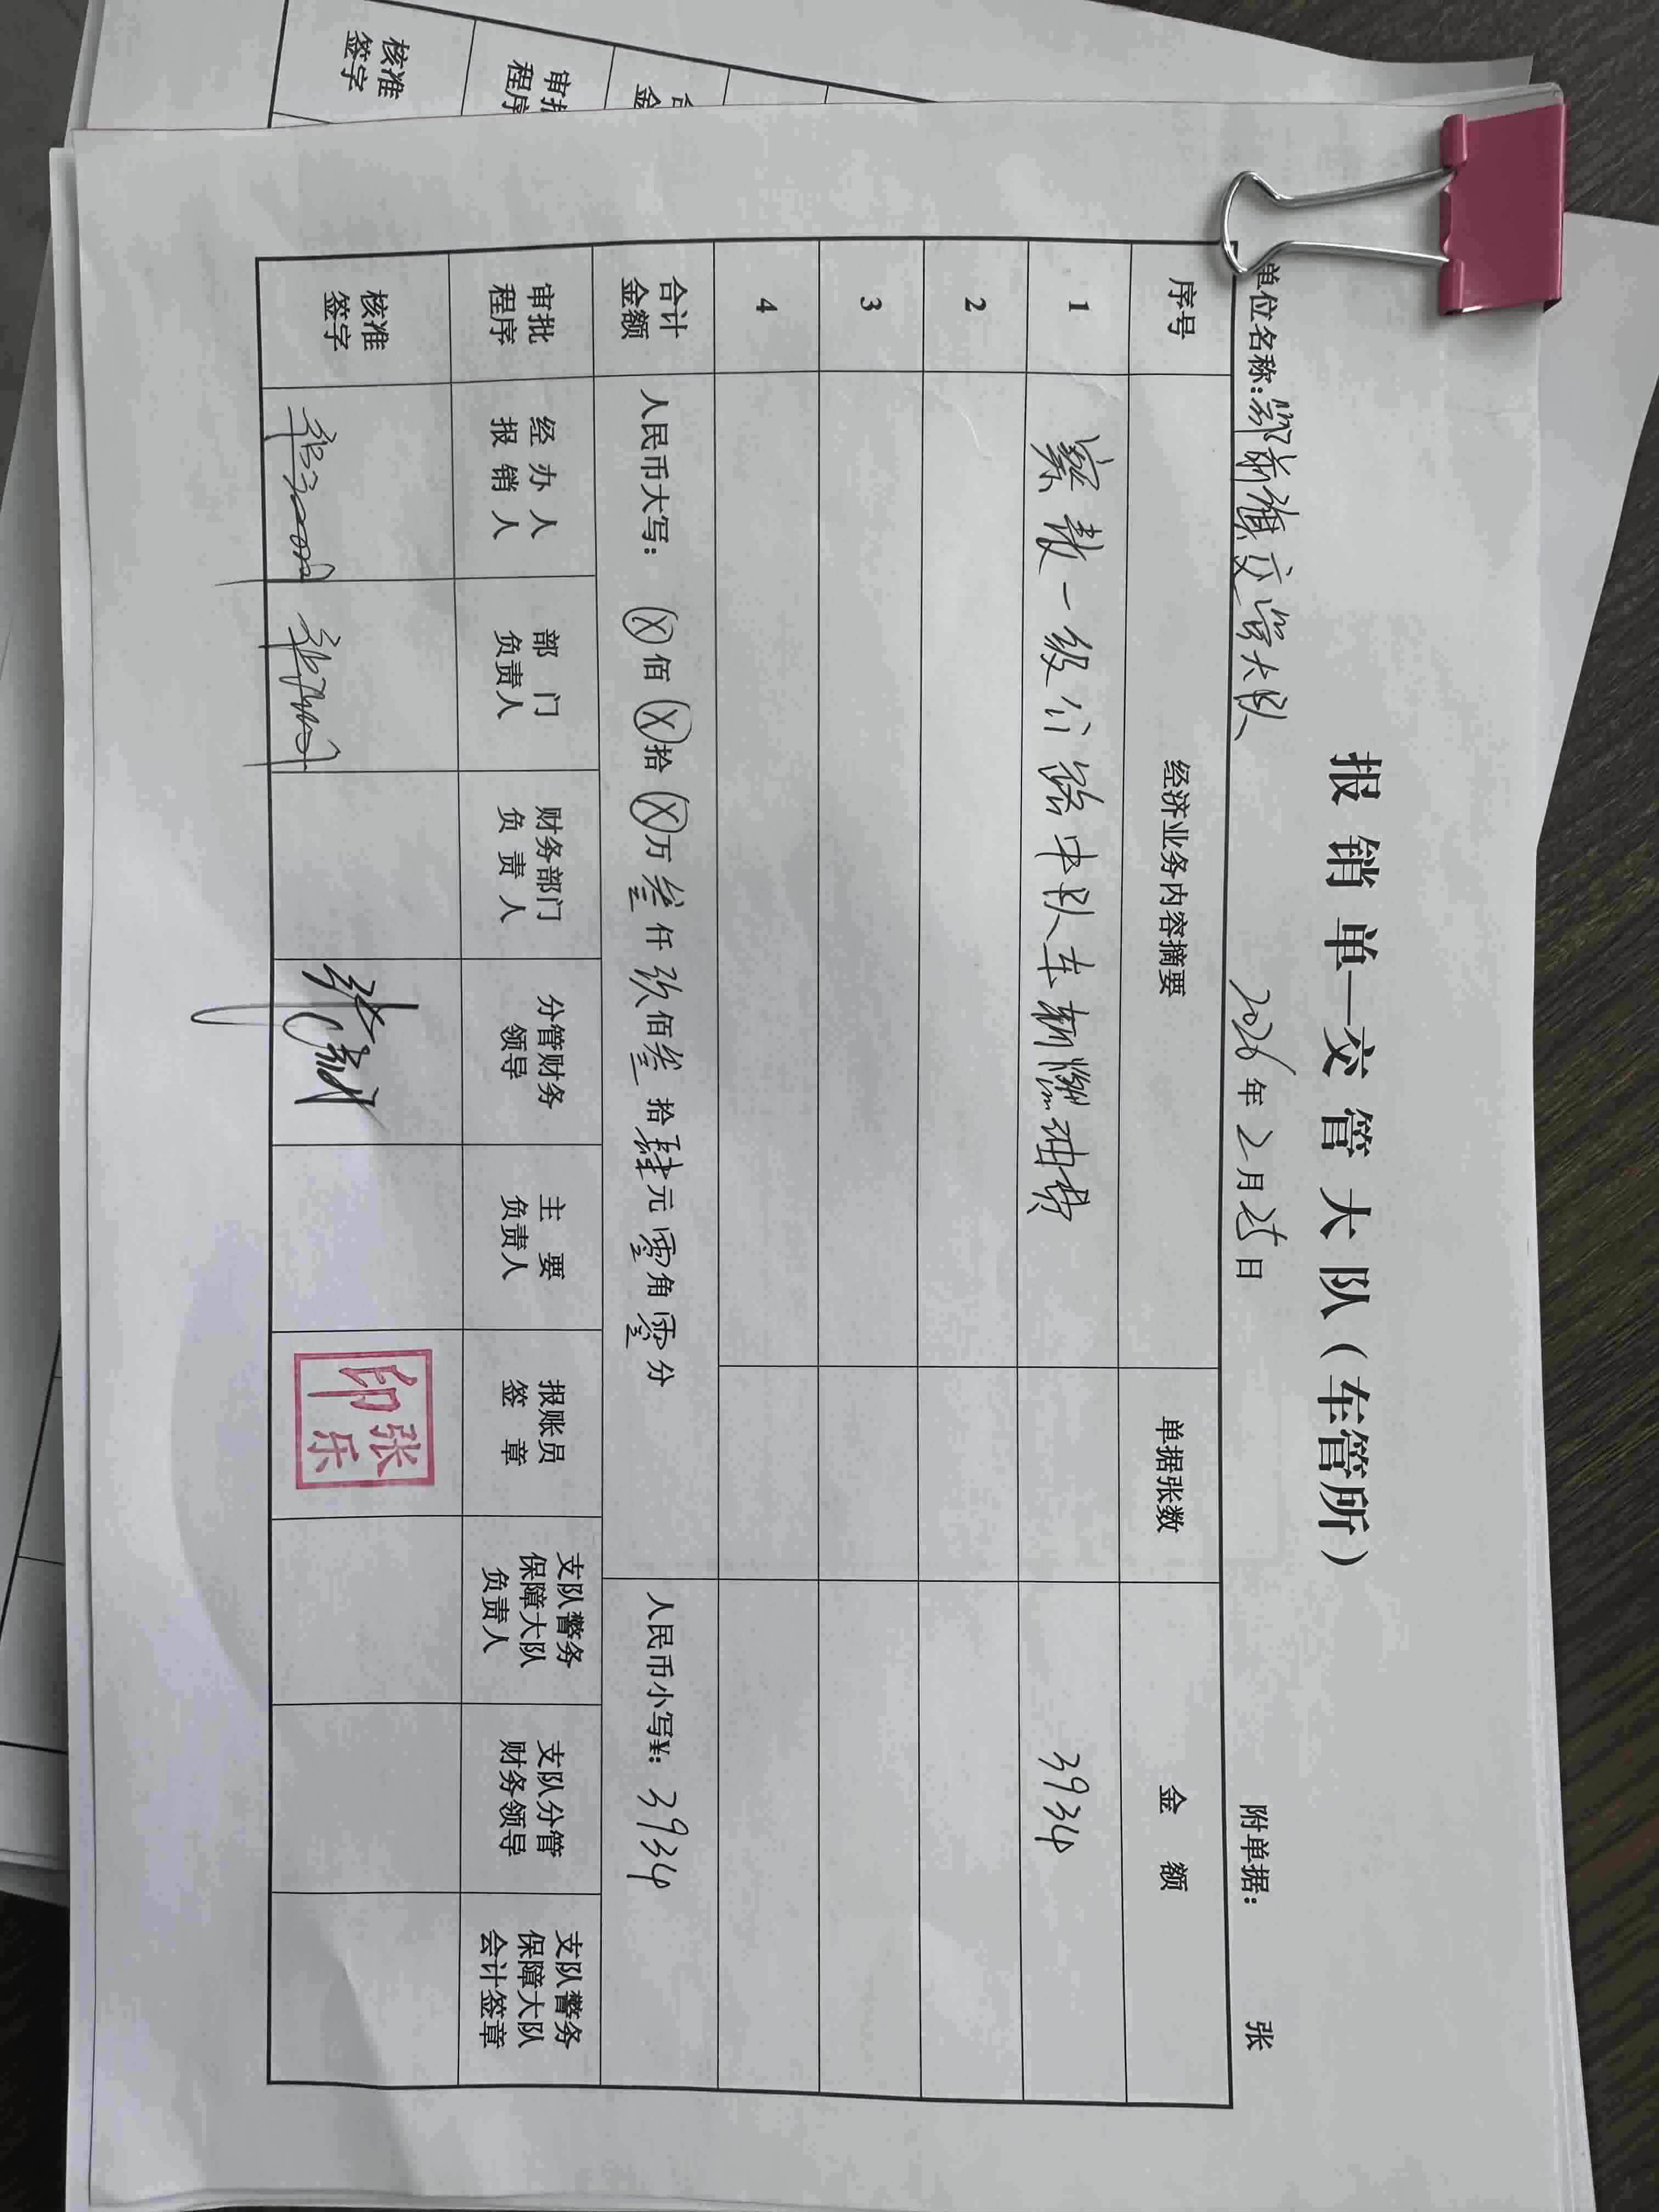 报销单—交管大队（车管所）
单位名称：鄂前旗交管大队 2026年2月25日 附单据： 张
序号 经济业务内容摘要 单据张数 金额
1 敖一级公路中队车辆燃油费 3934
2
3
4
合计金额 人民币大写： ⓧ佰ⓧ拾ⓧ万叁仟玖佰叁拾肆元零角零分 人民币小写¥：3934
审批程序 经办人报销人 部门负责人 财务部门负责人 分管财务领导 主要负责人 报账员签章 支队警务保障大队负责人 支队分管财务领导 支队警务保障大队会计签章
核准签字 张乐印
核准签字 审批程序 合 金